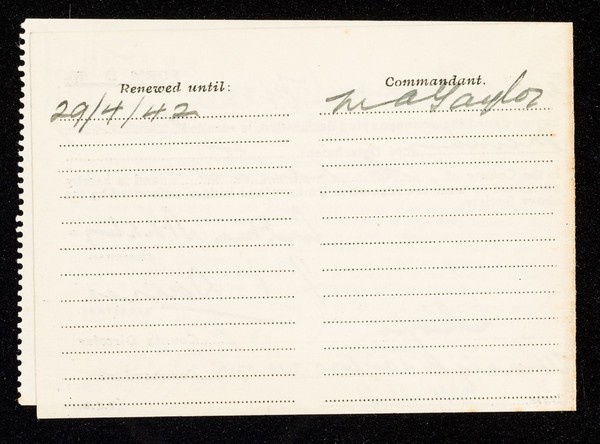 Renewed until: Commandant.
29/4/42 M A Taylor